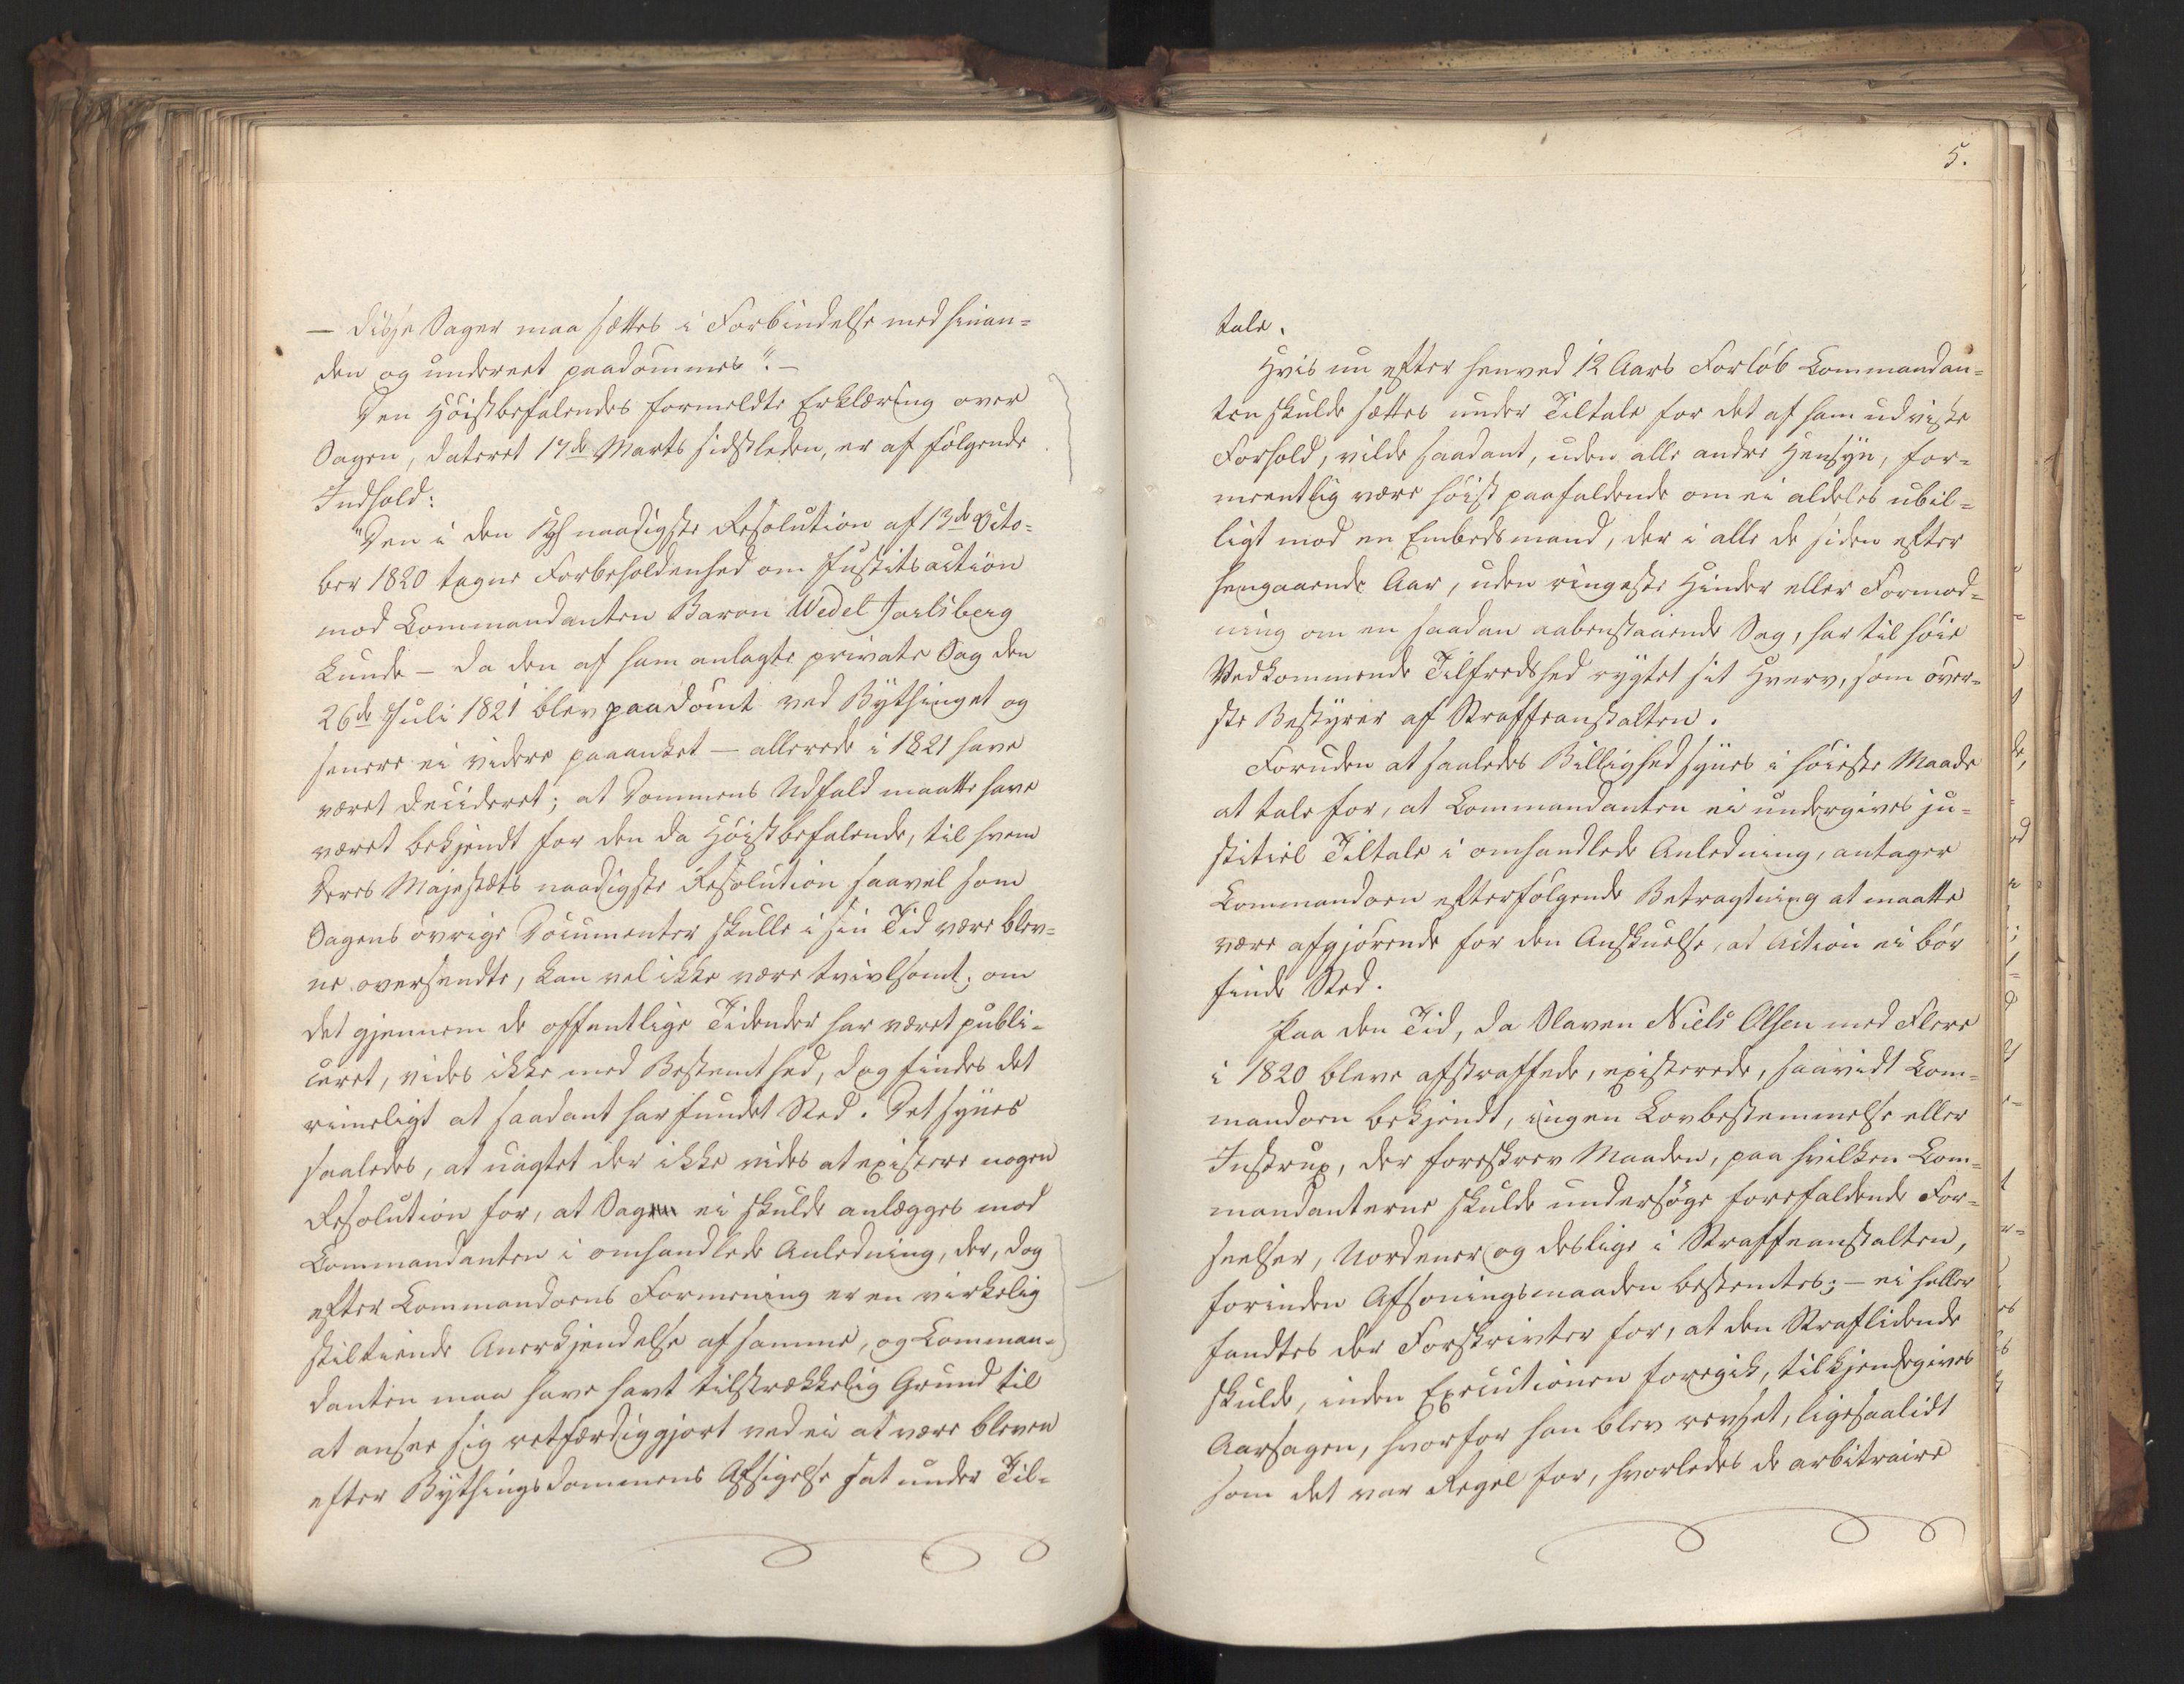 — disse Sager maa sættes i Forbindelse med hinan-
den og underret paadømmes". —
Den Høistbefalendes formeldte Erklæring over
Sagen, dateret 17de Marts sidstleden, er af følgende
Indhold:
"Den i den naadigste Resolution af 13de Octo-
ber 1820 tagne Forbeholdenhed om Justitsaction
mod Commandanten Baron Wedel Jarlsberg
kunde — da den af ham anlagte private Sag den
26de Juli 1821 blev paadømt ved Bythinget og
senere ei videre paaanket — allerede i 1821 have
været decideret; at Dommens Udfald maatte have
været bekjendt for den da Høistbefalende, til hvem
Deres Majestæts naadigste Resolution saavel som
Sagens øvrige Documenter skulle i sin Tid være blev-
ne oversendte, kan vel ikke være tvivlsomt; om
det gjennem de offentlige Tidender har været publi-
ceret, vides ikke med Bestemthed, dog findes det
rimeligt at saadant har fundet Sted. Det synes
saaledes, at uagtet der ikke vides at existere nogen
Resolution for, at Sag ei skulde anlægges mod
Commandanten i omhandlede Anledning, der, dog
efter Commandoens Formening er en virkelig
stiltiende Anerkjendelse af samme, og Comman-
danten maa have havt tilstrækkelig Grund til
at ansee sig retfærdiggjort ved ei at være bleven
efter Bythingsdommens Afsigelse sat under Til-
5.
tale.
Hvis nu efter henved 12 Aars Forløb Commandan-
ten skulde sættes under Tiltale for det af ham udviste
Forhold, vilde saadant, uden alle andre Hensyn, for-
meentlig være høist paafaldende om ei aldeles ubil-
ligt mod en Embedsmand, der i alle de siden efter
hengaaende Aar, uden ringeste Hinder eller Formod-
ning om en saadan aabenstaaende Sag, har til høie
Vedkommende Tilfredshed rygtet sit Hverv, som øver-
ste Bestyrer af Straffeanstalten.
Foruden at saaledes Billighed synes i høieste Maade
at tale for, at Commandanten ei undergives ju-
stitiel Tiltale i omhandlede Anledning, antager
Commandoen efterfølgende Betragtning at maatte
være afgjørende for den Anskuelse, at Action ei bør
finde Sted.
Paa den Tid, da Slaven Niels Olsen med Flere
i 1820 bleve afstraffede, existerede, saavidt Com-
mandoen bekjendt, ingen Lovbestemmelse eller
Instrux, der foreskrev Maaden, paa hvilken Com-
mandanterne skulde undersøge forefaldende For-
seelser, Uordener og deslige i Straffeanstalten,
forinden Afsoningsmaaden bestemtes; — ei heller
fandtes der Forskrivter for, at den Straflidende
skulde, inden Executionen foregik, tilkjendegives
Aarsagen, hvorfor han blev revset, ligesaalidt
som det var Regel for, hvorledes de arbitraire